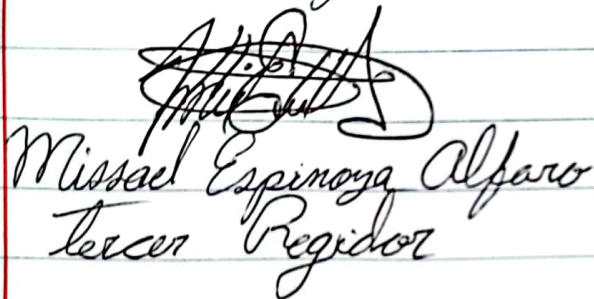 Missael Espinoza Alfaro
Tercer Regidor